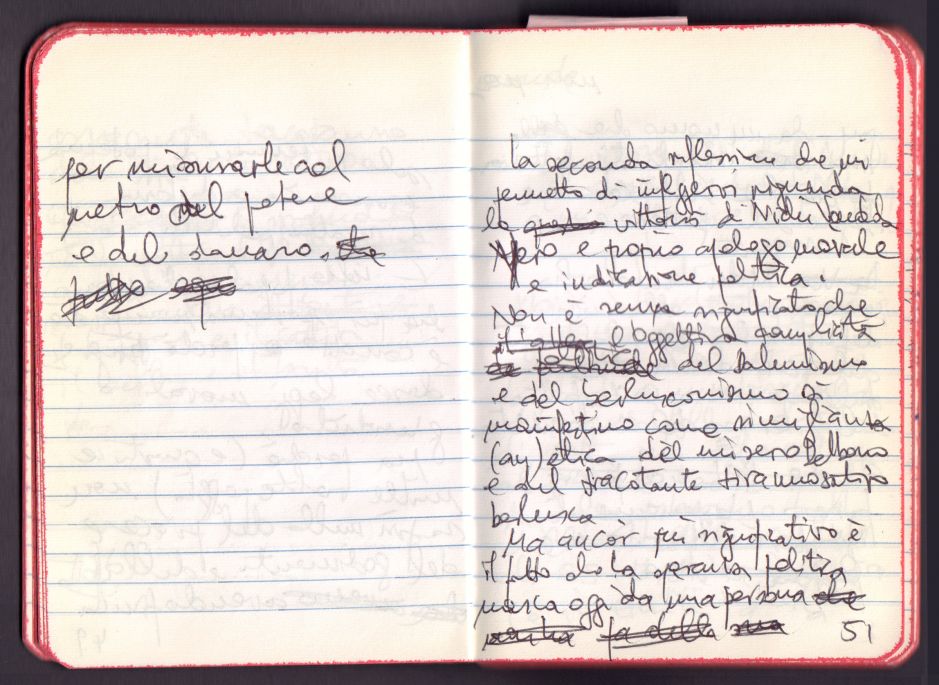 per misurarle col
metro del potere
e del danaro.
La seconda riflessione che mi
permetto di infliggervi riguarda
la questa vittoria di Nichi Vendola
Vero e proprio apologo morale
e indicazione politica.
Non è senza significato che
l'oggettiva complicità
politica del dalemismo
e del berlusconismo si
manifestino come simiglianza
(an)etica del misero
e del tracotante
berlusca
Ma ancor più significativo è
il fatto che la speranza politica
nasca oggi da una persona che
51